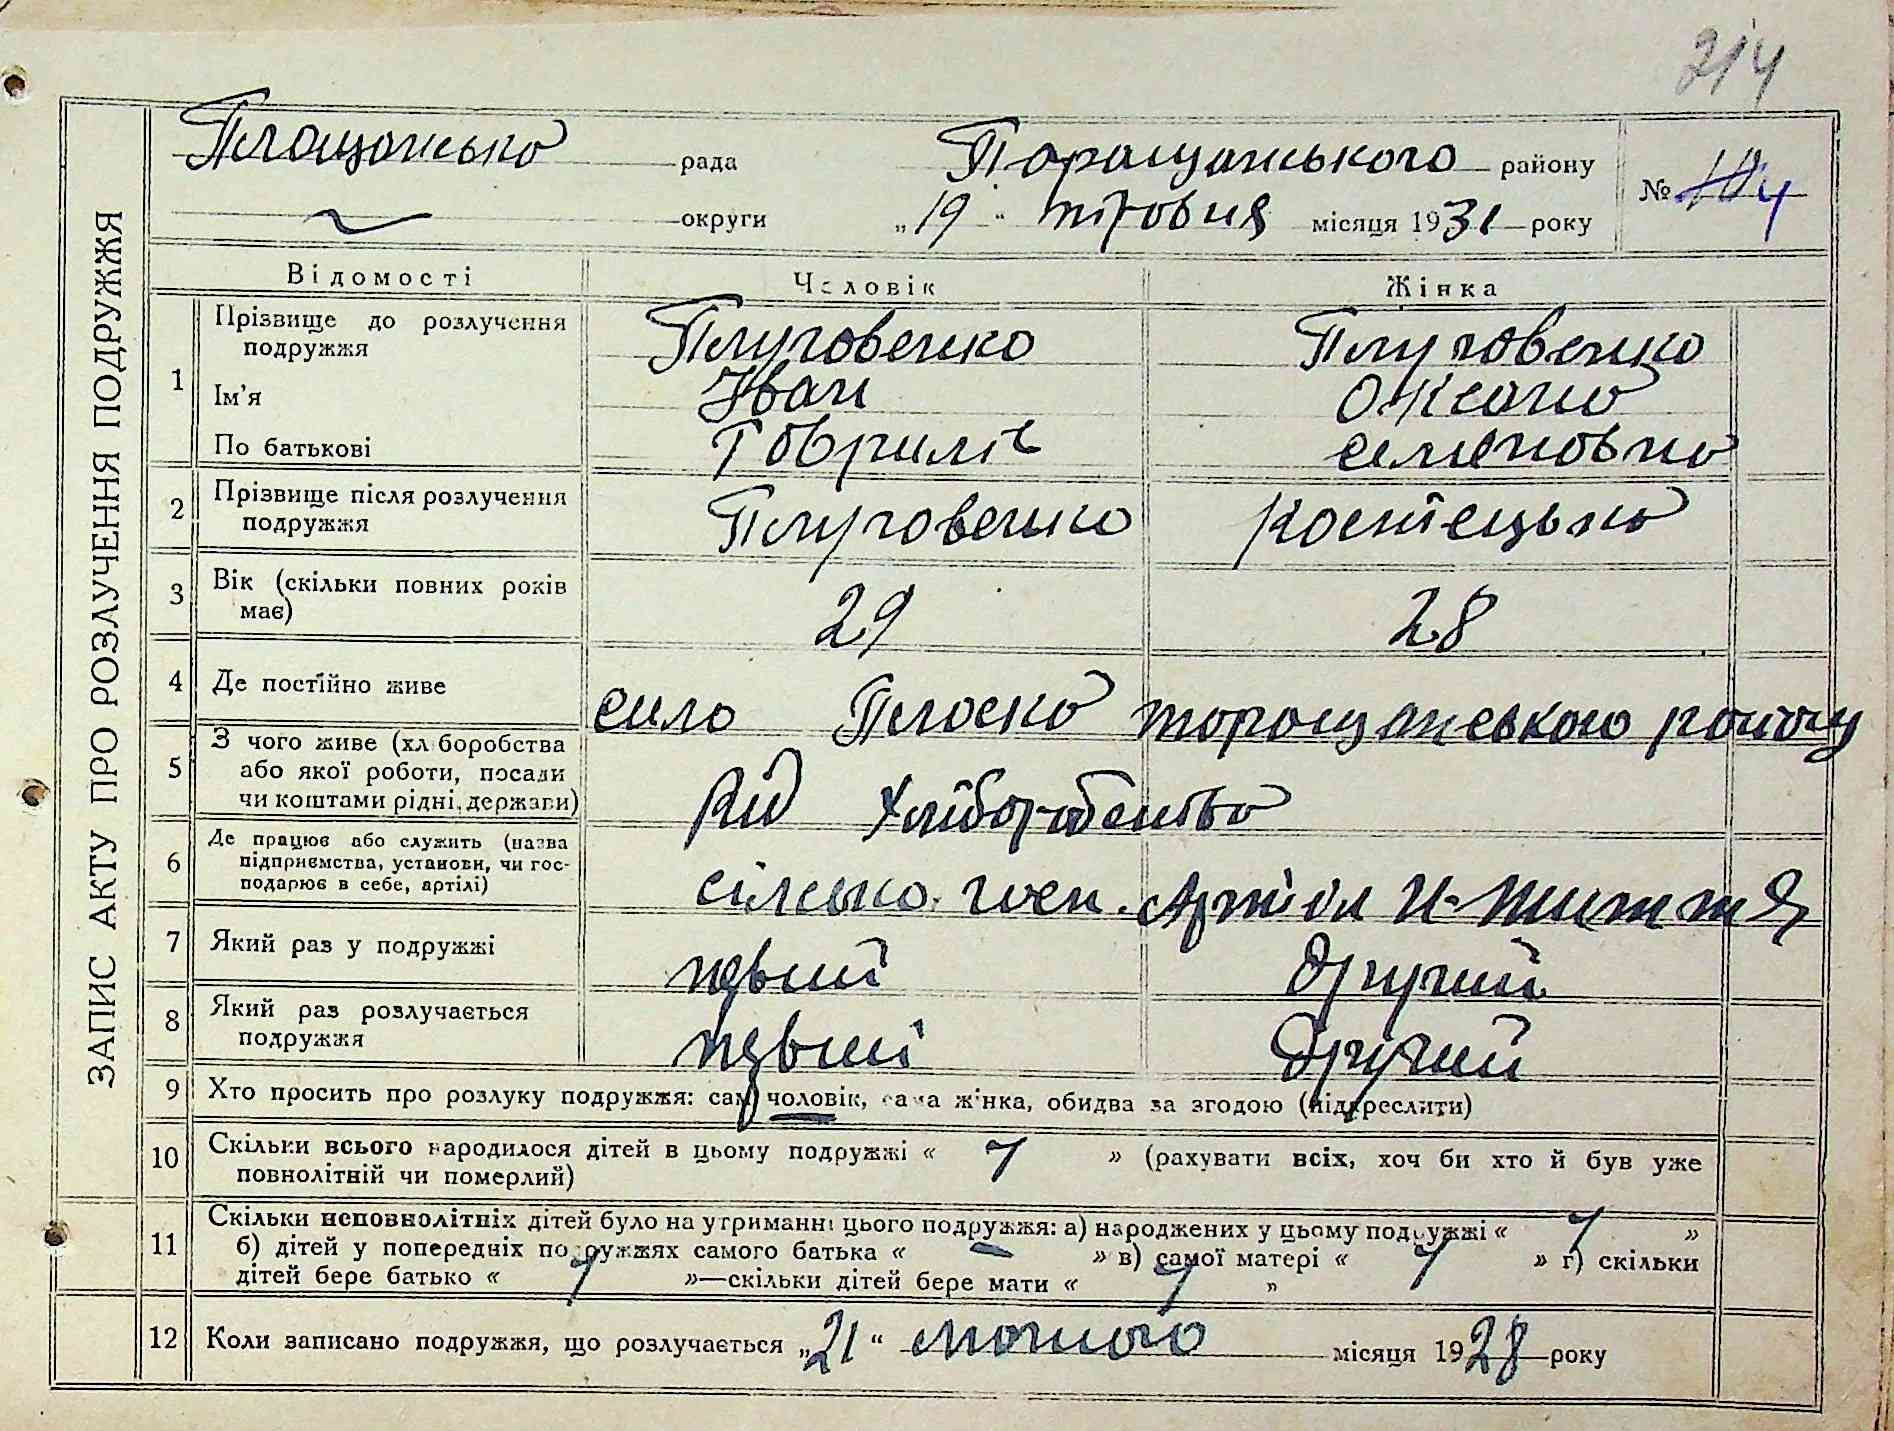 214
ЗАПИС АКТУ ПРО РОЗЛУЧЕННЯ ПОДРУЖЖЯ
Площанська рада Таращанського району №
округи „19“ травня місяця 1931 року
Відомості Чоловік Жінка
1 Прізвище до розлучення подружжя Плуговенко Плуговенко
Ім'я Іван Оксана
По батькові Гаврилів Семеновна
2 Прізвище після розлучення подружжя Плуговенко Костецька
3 Вік (скільки повних років має) 29 28
4 Де постійно живе село Плоска таращанського району
5 З чого живе (хліборобства або якої роботи, посади чи коштами рідні, держави) Від Хліборобства
6 Де працює або служить (назва підприємства, установи, чи господарює в себе, артілі) сілько. госп. Артіль Н-Життя
7 Який раз у подружжі первий другий
8 Який раз розлучається подружжя первий другий
9 Хто просить про розлуку подружжя: сам чоловік, сама жінка, обидва за згодою (підкреслити)
10 Скільки всього народилося дітей в цьому подружжі « 1 » (рахувати всіх, хоч би хто й був уже
повнолітній чи померлий)
11 Скільки неповнолітніх дітей було на утриманні цього подружжя: а) народжених у цьому подружжі « 1 »
б) дітей у попередніх подружжях самого батька « – » в) самої матері « 1 » г) скільки
дітей бере батько « 1 »—скільки дітей бере мати « 1 »
12 Коли записано подружжя, що розлучається „21“ лютого місяця 1928 року